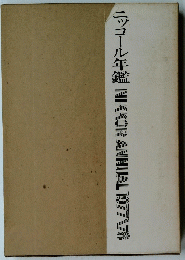 ニッコール年鑑
NIKKOR ANNUAL